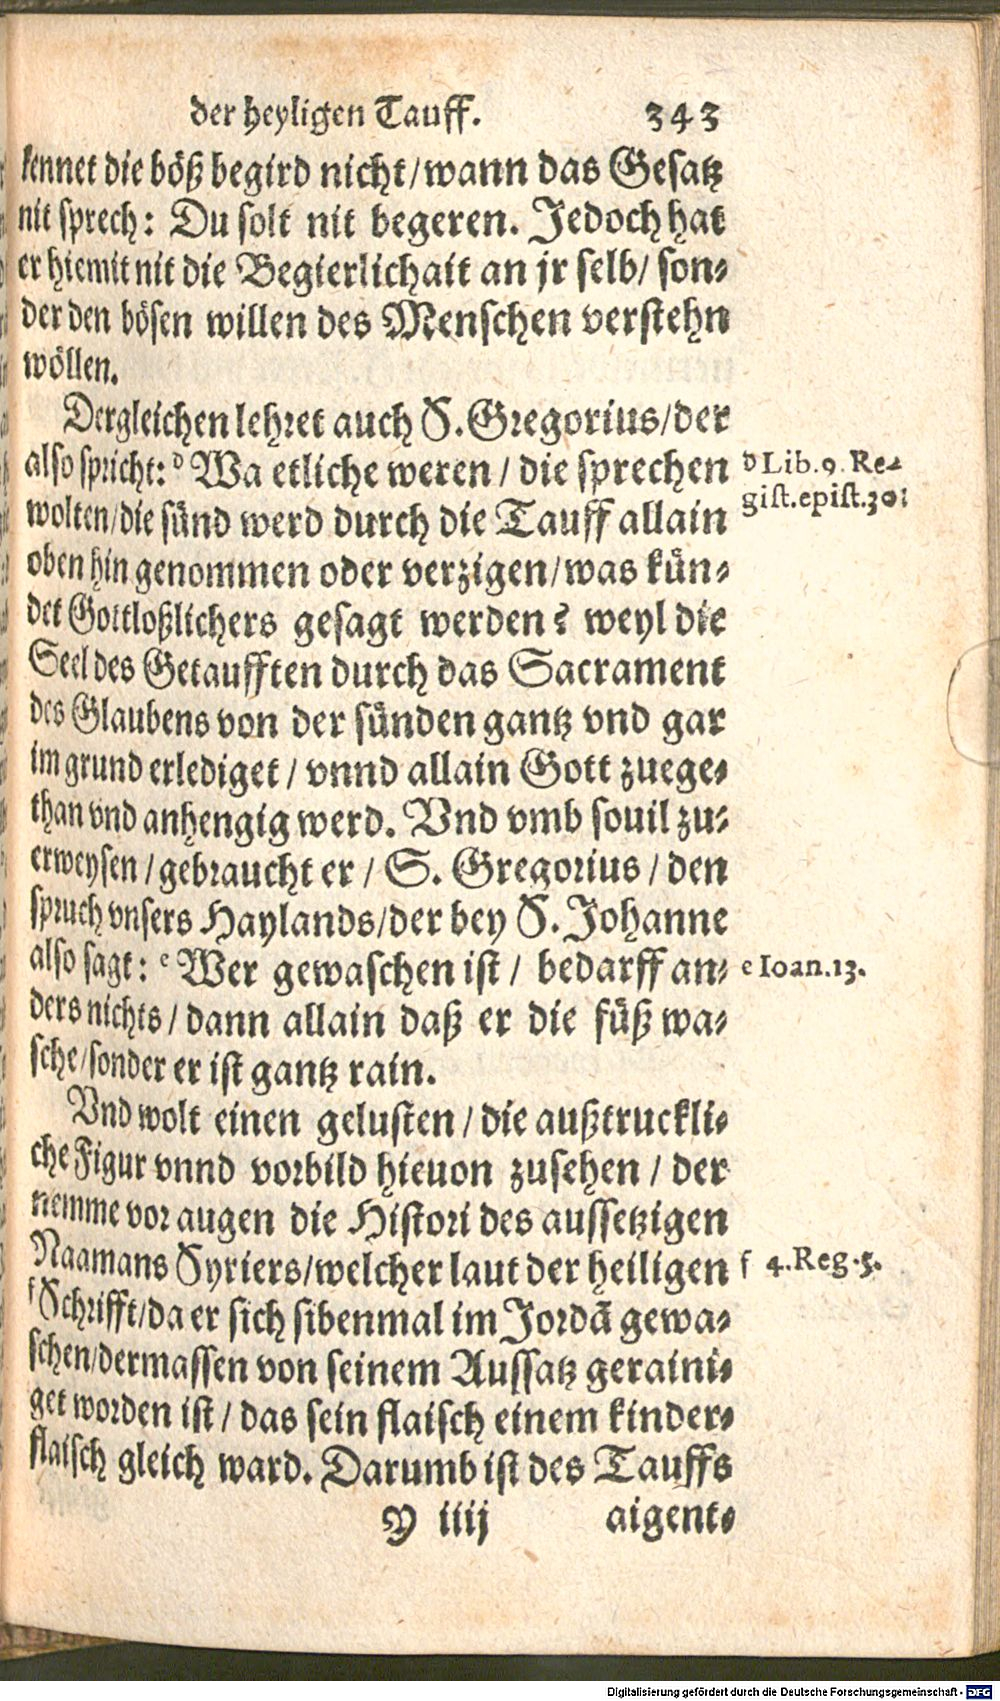 der heyligen Tauff. 343
kennet die böß begird nicht / wann das Gesatz
nit sprech: Du solt nit begeren. Jedoch hat
er hiemit nit die Begierlichait an jr selb / son⸗
der den bösen willen des Menschen verstehn
wöllen.
Dergleichen lehret auch S. Gregorius / der
also spricht: ᵈ Wa etliche weren / die sprechen
d Lib. 9. Re⸗
gist. epist. 39:
wolten / die sünd werd durch die Tauff allain
oben hin genommen oder verzigen / was kün⸗
det Gottloßlichers gesagt werden? weyl die
Seel des Getaufften durch das Sacrament
des Glaubens von der sünden gantz vnd gar
im grund erlediget / vnnd allain Gott zuege⸗
than vnd anhengig werd. Vnd vmb souil zu⸗
erweysen / gebraucht er / S. Gregorius / den
spruch vnsers Haylands / der bey S. Johanne
also sagt: ᵉ Wer gewaschen ist / bedarff an⸗
e Ioan. 13.
ders nichts / dann allain daß er die füß wa⸗
sche / sonder er ist gantz rain.
Vnd wolt einen gelusten / die außtruckli⸗
che Figur vnnd vorbild hieuon zusehen / der
nemme vor augen die Histori des aussetzigen
Naamans Syriers / welcher laut der heiligen
f 4. Reg. 5.
ᶠ Schrifft / da er sich sibenmal im Jordā gewa⸗
schen / dermassen von seinem Aussatz geraini⸗
get worden ist / das sein flaisch einem kinder⸗
flaisch gleich ward. Darumb ist des Tauffs
Y iiij aigent⸗
Digitalisierung gefördert durch die Deutsche Forschungsgemeinschaft - DFG